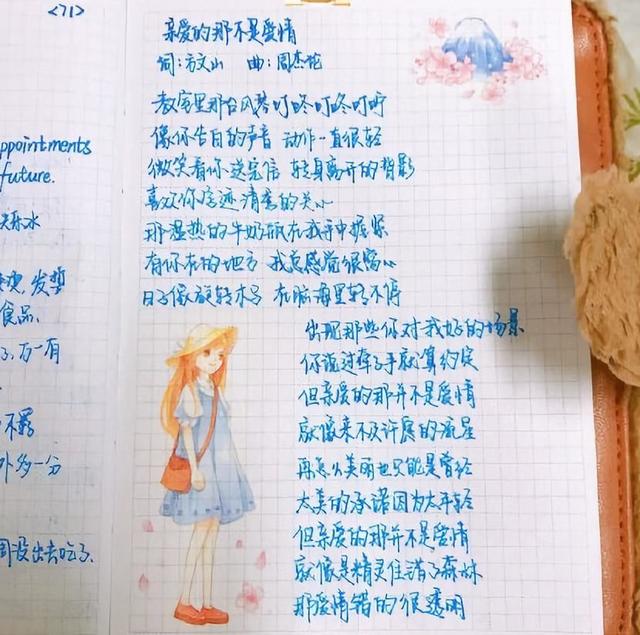 <71>
ppointments
future.
食品、
了,万一有
外多一分
周没出去吃了.
亲爱的那不是爱情
词:方文山 曲:周杰伦
教室里那台风琴叮咚叮咚叮咛
像你告白的声音 动作一直很轻
微笑看你送完信 转身离开的背影
喜欢你字迹清秀的关心
那温热的牛奶瓶在我手中握紧
有你在的地方 我总感觉很窝心
日子像旋转木马 在脑海里转不停
出现那些你对我好的场景
你说过牵了手就算约定
但亲爱的那并不是爱情
就像来不及许愿的流星
再怎么美丽也只能是曾经
太美的承诺因为太年轻
但亲爱的那并不是爱情
就像是精灵住错了森林
那爱情错的很透明